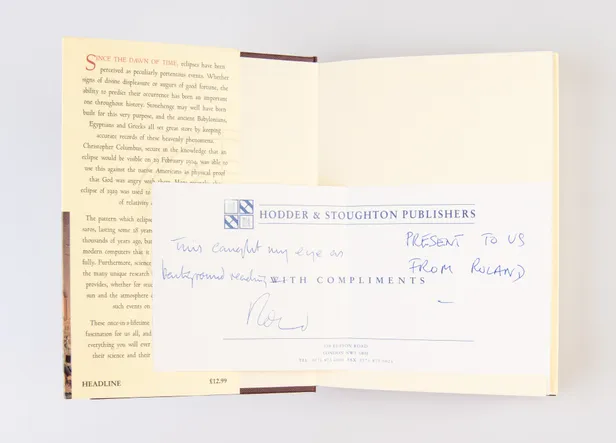 SINCE THE DAWN OF TIME, eclipses have been
perceived as peculiarly portentous events. Whether
signs of divine displeasure or augurs of good fortune, the
ability to predict their occurrence has been an important
one throughout history. Stonehenge may well have been
built for this very purpose, and the ancient Babylonians,
Egyptians and Greeks all set great store by keeping
accurate records of these heavenly phenomena.
Christopher Columbus, secure in the knowledge that an
eclipse would be visible on 29 February 1504, was able to
use this against the native Americans as physical proof
that God was angry with them.
eclipse of 1919 was used to
of relativity
The pattern which eclipse
lasting some 18 years
thousands of years ago, but
modern computers that it
fully. Furthermore, science
the many unique research
provides, whether for
sun and the atmosphere
such events on
These once-in-a-lifetime
fascination for us all, and
everything you will ever
their science and their
HEADLINE £12.99
HODDER & STOUGHTON PUBLISHERS
This caught my eye as
background reading
WITH COMPLIMENTS
PRESENT TO US
FROM ROLAND
338 EUSTON ROAD
LONDON NW1 3BH